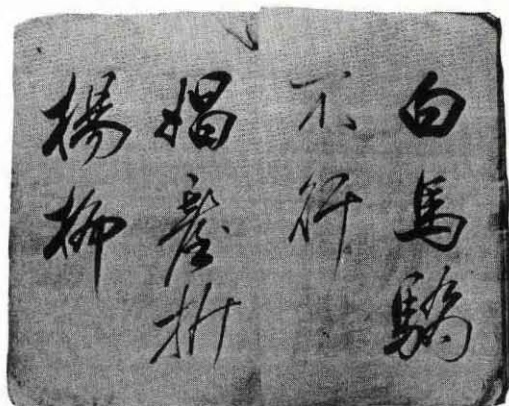 白馬驕
不行
娼臺折
楊柳